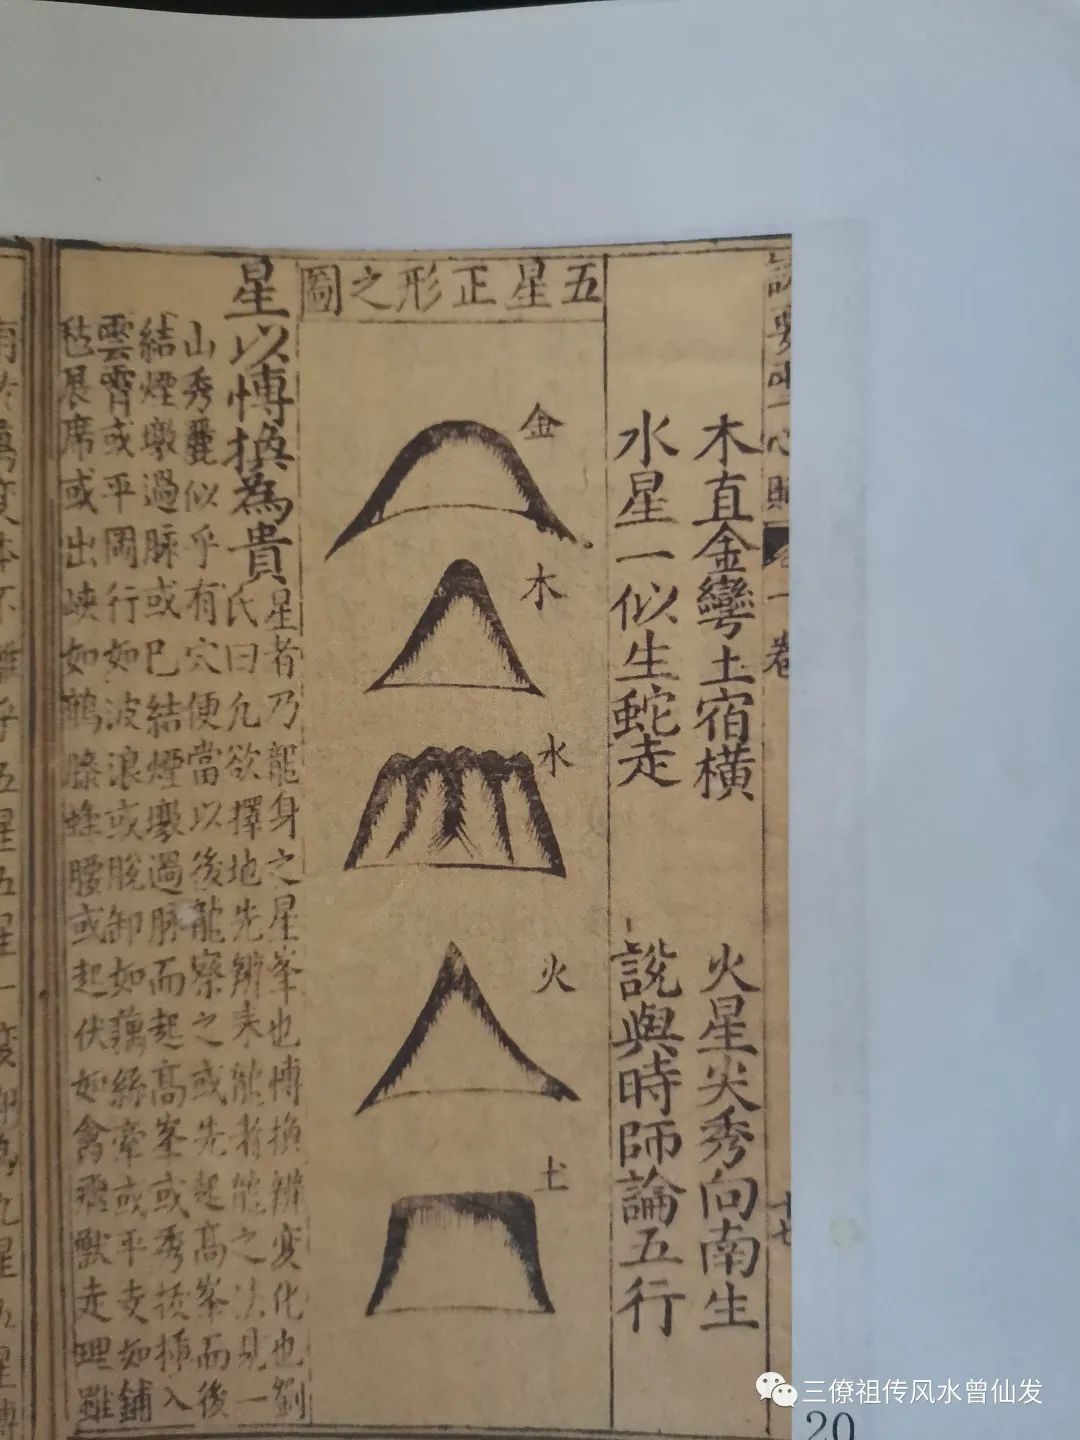 木直金彎土宿橫 火星尖秀向南生
水星一似生蛇走 說與時師論五行
五星正形之圖
金
木
水
火
土
星以愽換為貴
星者乃龍身之星峯也愽換辨変化也劉
氏曰凢欲擇地先辨来龍者龍之法見一
山秀麗似乎有穴便當以後龍察之或先起高峯而後
結煙墩過脉或已結煙墩過脉而起高峯或秀拔挿入
雲霄或平岡行如波浪或脫卸如藕絲牽或平支如鋪
毡展席或出峽如鶴膝蜂腰或起伏如禽飛獸走理雖
三僚祖传风水曾仙发
20